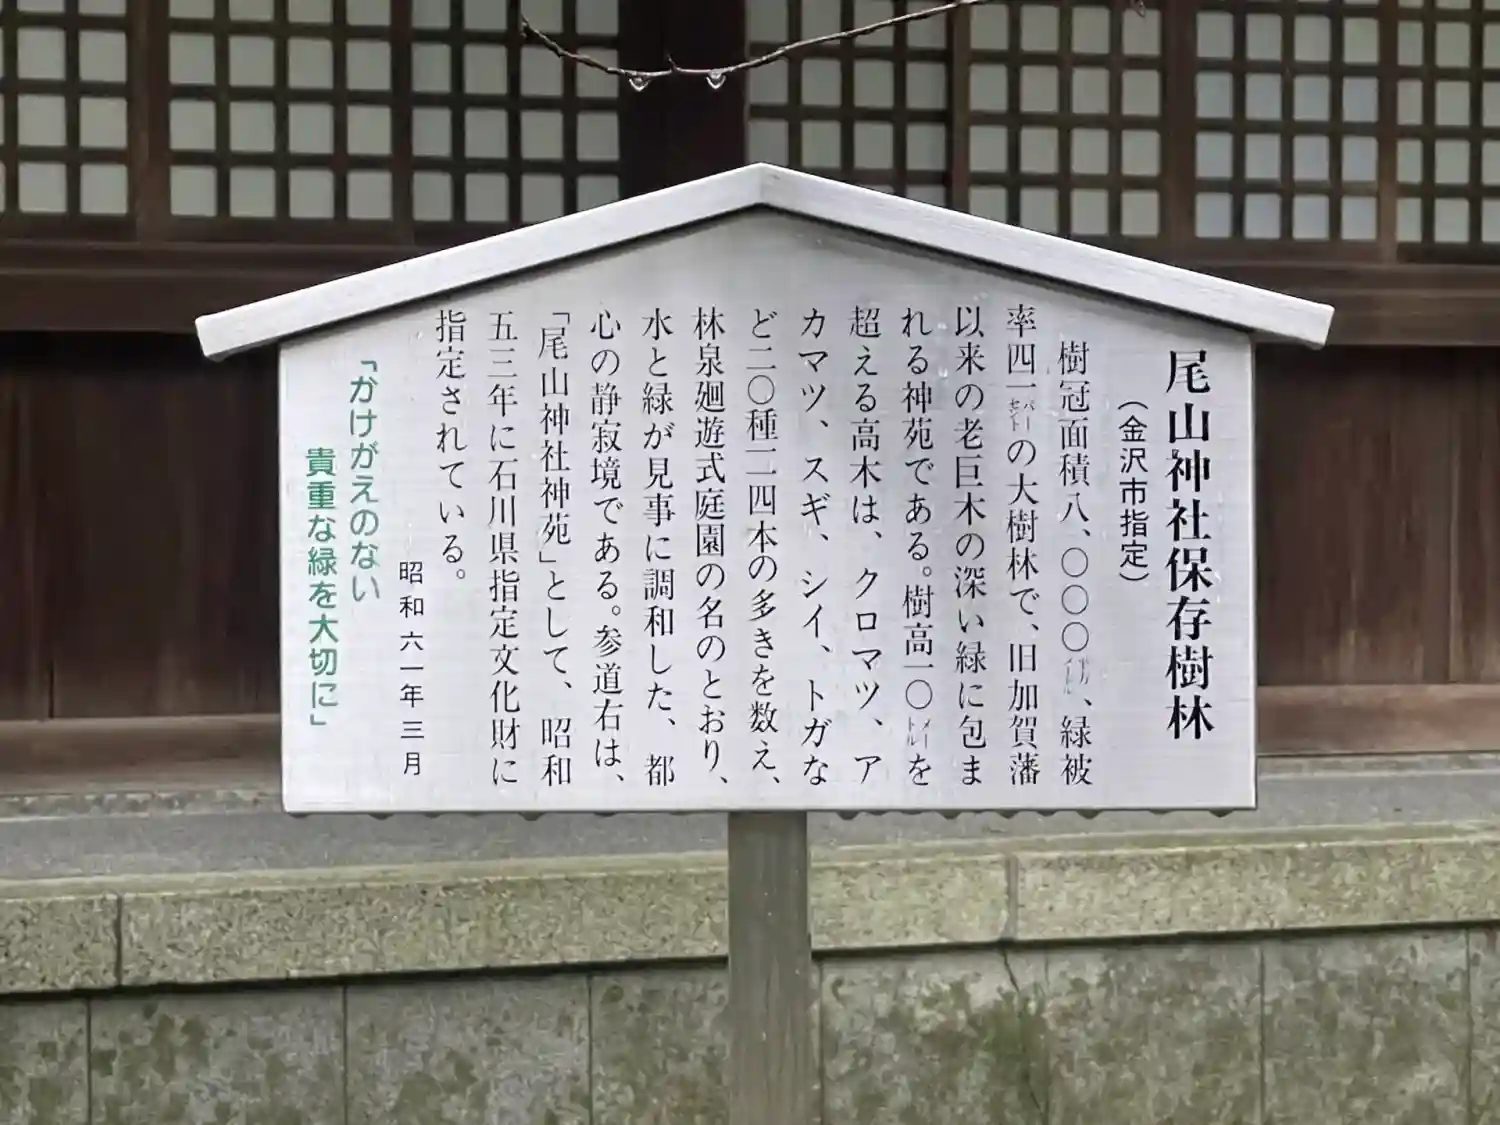 尾山神社保存樹林
（金沢市指定）
樹冠面積八、〇〇〇平方メートル、緑被
率四一パーセントの大樹林で、旧加賀藩
以来の老巨木の深い緑に包ま
れる神苑である。樹高一〇メートルを
超える高木は、クロマツ、ア
カマツ、スギ、シイ、トガな
ど二〇種一一四本の多きを数え、
林泉廻遊式庭園の名のとおり、
水と緑が見事に調和した、都
心の静寂境である。参道右は、
「尾山神社神苑」として、昭和
五三年に石川県指定文化財に
指定されている。
昭和六一年三月
「かけがえのない
貴重な緑を大切に」